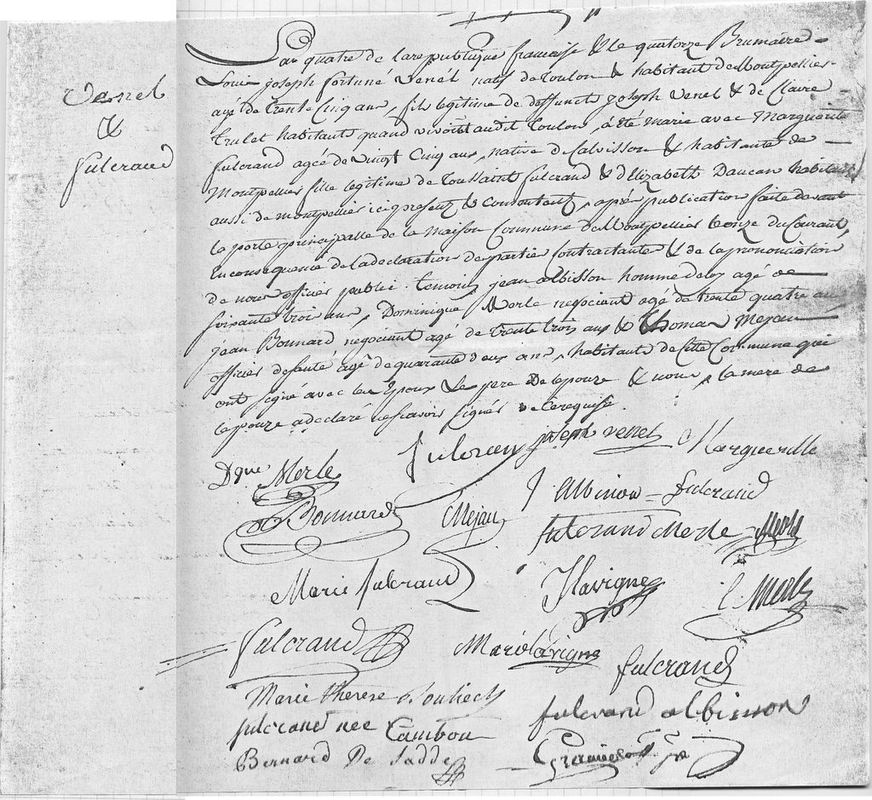 Venel
&
fulcrand
L'an quatre de la republique francaise & le quatorze Brumaire
Louis joseph fortuné Venel natif de Toulon & habitant de Montpellier
agé de trente cinq ans, fils legitime de deffunts joseph Venel & de Claire
trulet habitants quand vivoint audit Toulon, a été marié avec Marguerite
fulcrand agée de vingt cinq ans, native de Calvisson & habitante de
Montpellier fille legitime de Toussaint fulcrand & d'Elizabeth Daucan habitants
aussi de montpellier ici presents & consentants, après publication faite devant
la porte principalle de la maison Commune de Montpellier le onze du Courant,
en consequence de la declaration des parties contractantes & de la prononciation
de nous officier public temoins jean albisson homme de loy agé de
soixante trois ans, Dominique Merle negociant agé de trente quatre ans
jean Bonnard negociant agé de trente trois ans & thomas Mejan
officier de santé agé de quarante deux ans, habitants de cette Commune qui
ont signé avec les Epoux Le pere de l'epouze & nous, la mere de
l'epouze a declaré ne scavoir signer de ce requise.
fulcran joseph venel Margueritte
Dque Merle
J albisson fulcrand
Bonnard Mejan
fulcrand Merle Merle
Marie fulcrand Flavigne Merle
fulcrand Marie lavigne
fulcrand
Marie Therese
fulcrand née Cambon fulcrand albisson
Bernard De Sadde